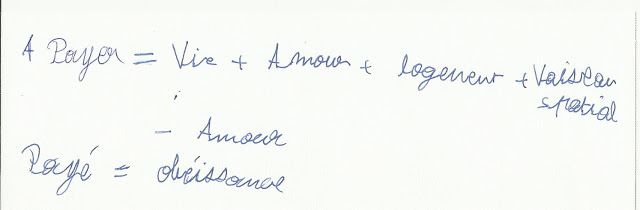 A Payer = Vie + Amour + logement + Vaisseau
spatial
- Amour
Payé = obéissance